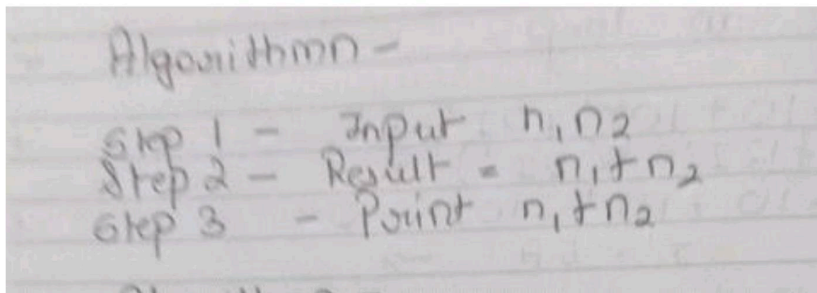 Algorithmn -
Step 1 - Input n1 n2
Step 2 - Result = n1 + n2
Step 3 - Print n1 + n2